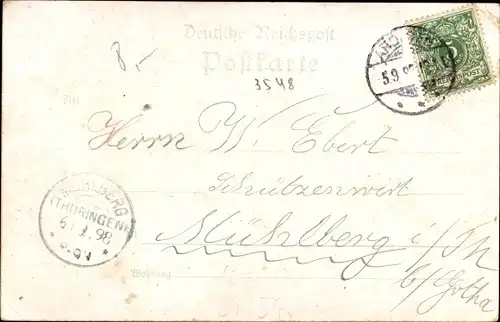 Deutsche Reichspost
Postkarte
8,-
3548
An
Herrn W. Ebert
Schützenwirt
Mühlberg i/Th
b/Gotha
Wohnung
MÜHLBERG
(THÜRINGEN)
98
8-9V
5.9